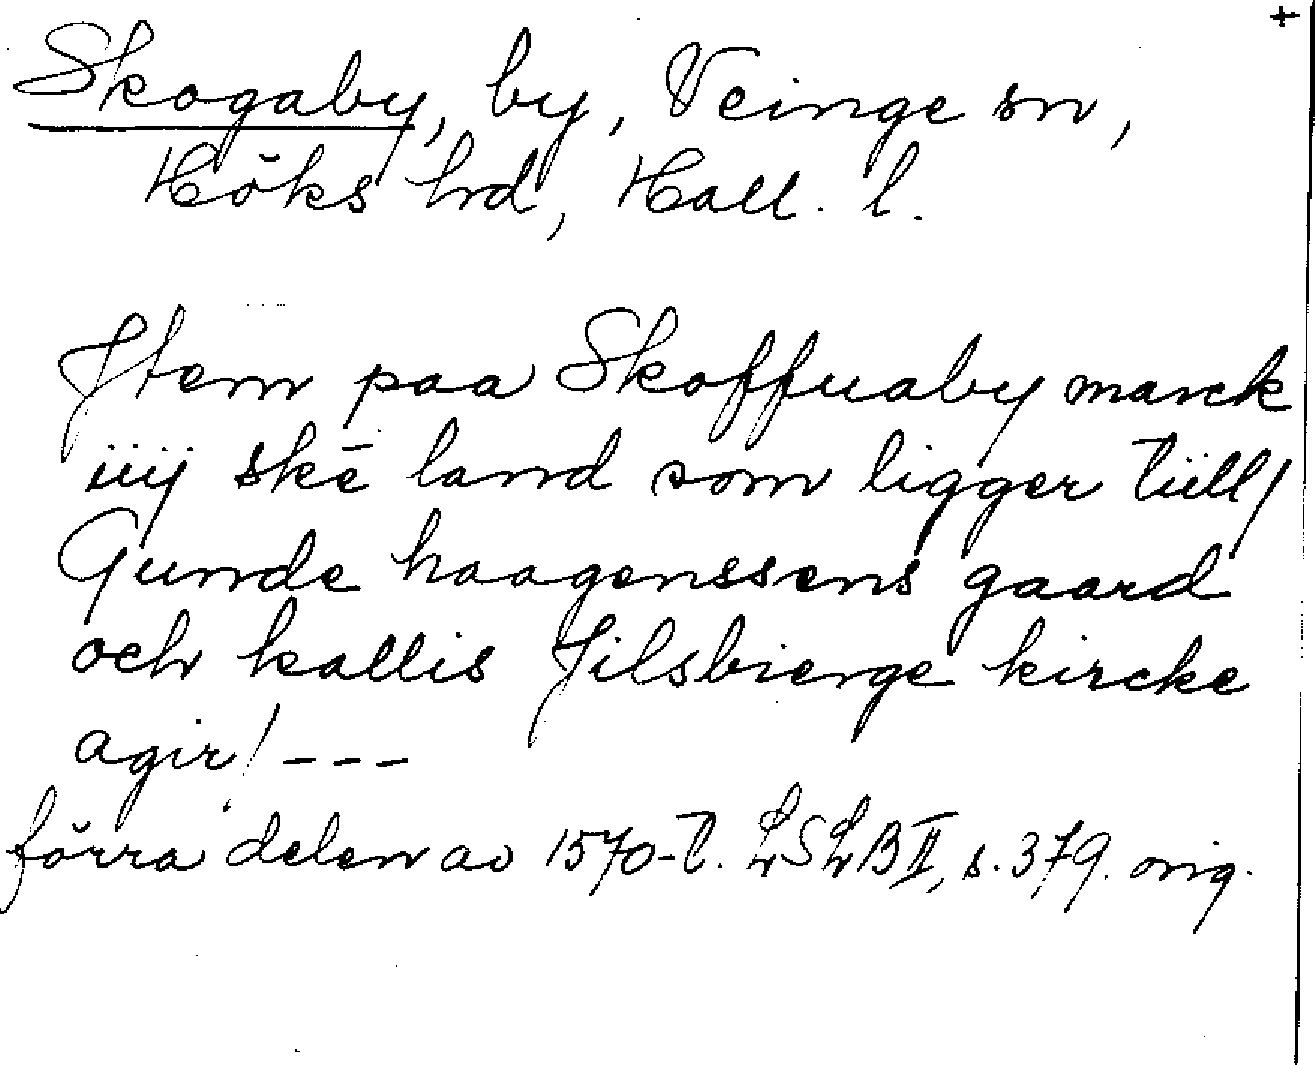 +
Skogaby, by, Veinge sn,
Höks hrd, Hall. l.
Jtem paa Skoffuaby marck
iiij skē land som ligger tiill/
Gunde haagenssens gaard
och kallis Jilsbierge kircke
agir/ ---
förra delen av 1570-t. LSLB II, s. 379. orig.